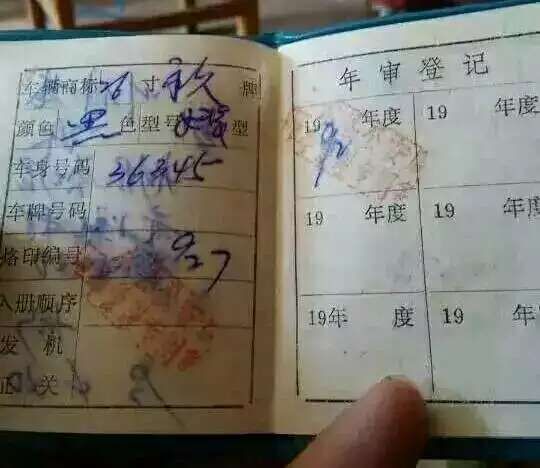 车辆商标 寸 牌
颜色 黑 色 型号 型
车身号码 36345
车牌号码
烙印编号 927
入册顺序
发 机
正 关
年审登记
1992年度 19 年度
19 年度 19 年度
19年 度 19 年度